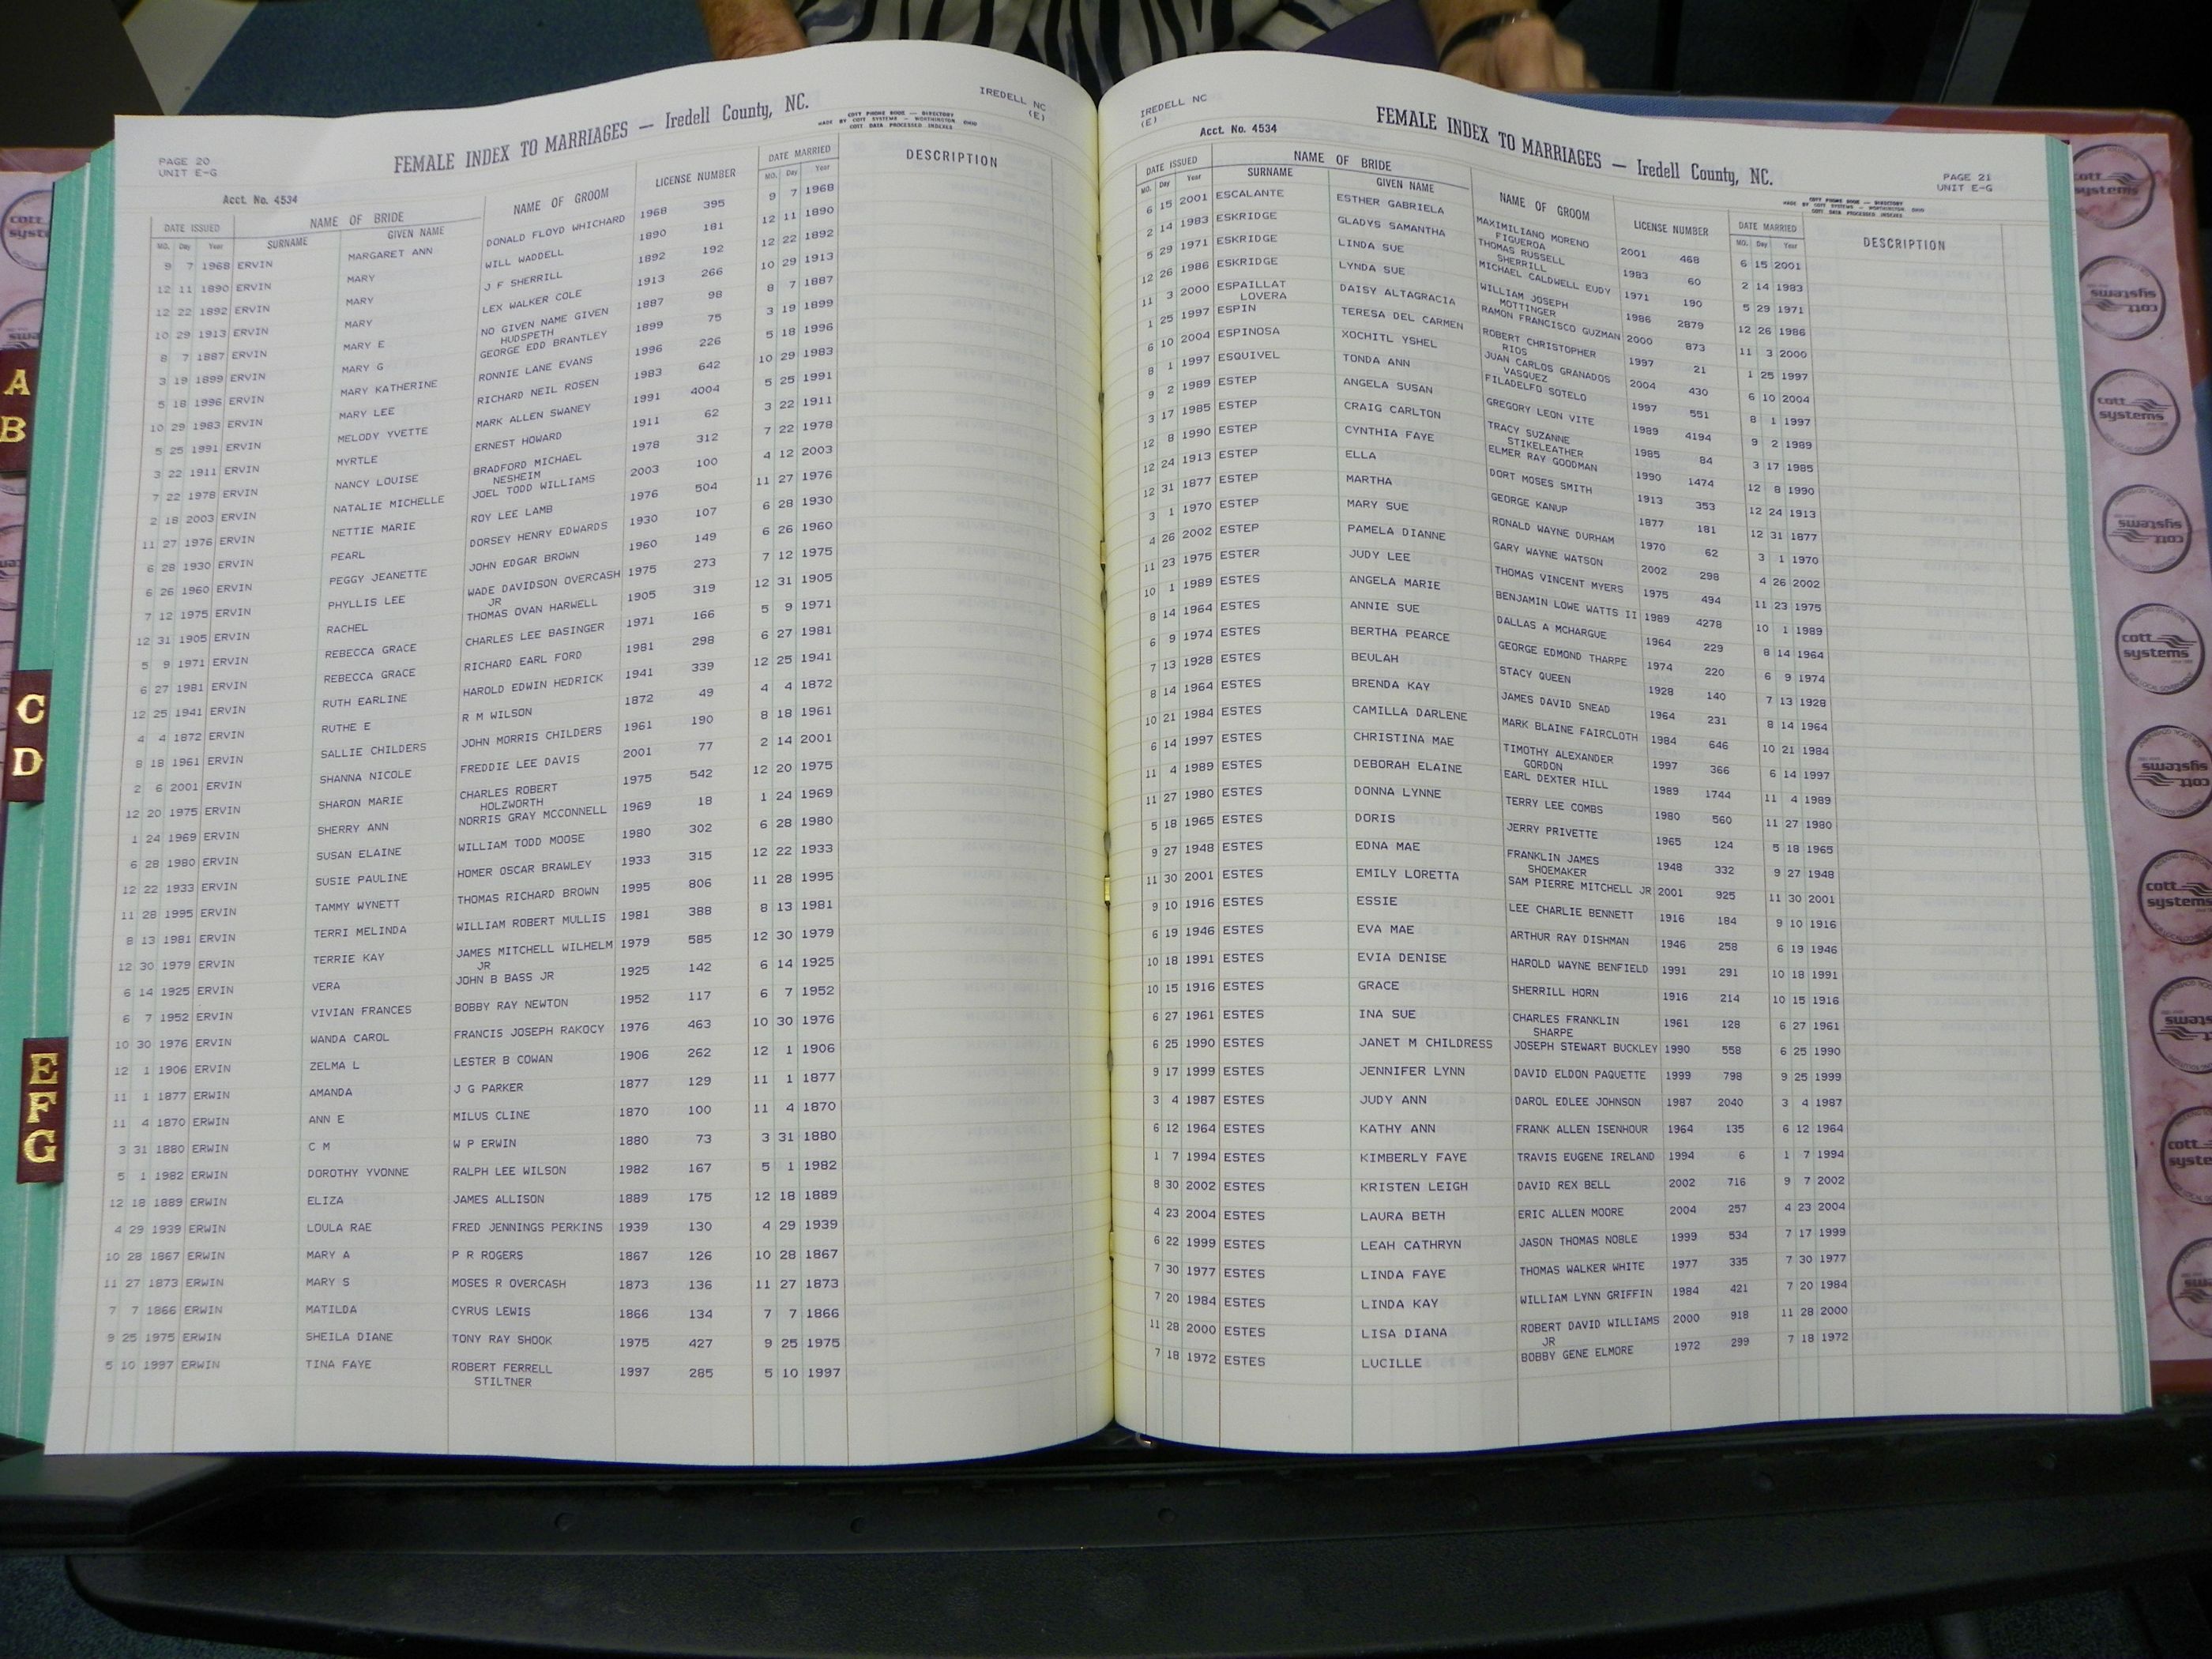 IREDELL NC
(E)
PAGE 20
UNIT E-G
FEMALE INDEX TO MARRIAGES — Iredell County, NC.
COTT PHONE BOOK — DIRECTORY
MADE BY COTT SYSTEMS — WORTHINGTON OHIO
COTT DATA PROCESSED INDEXES
Acct. No. 4534
DATE ISSUED NAME OF BRIDE NAME OF GROOM LICENSE NUMBER DATE MARRIED DESCRIPTION
MO. Day Year SURNAME GIVEN NAME MO. Day Year
9 7 1968 ERVIN MARGARET ANN DONALD FLOYD WHICHARD 1968 395 9 7 1968
12 11 1890 ERVIN MARY WILL WADDELL 1890 181 12 11 1890
12 22 1892 ERVIN MARY J F SHERRILL 1892 192 12 22 1892
10 29 1913 ERVIN MARY LEX WALKER COLE 1913 266 10 29 1913
8 7 1887 ERVIN MARY E NO GIVEN NAME GIVEN 1887 98 8 7 1887
HUDSPETH
3 19 1899 ERVIN MARY G GEORGE EDD BRANTLEY 1899 75 3 19 1899
5 18 1996 ERVIN MARY KATHERINE RONNIE LANE EVANS 1996 226 5 18 1996
10 29 1983 ERVIN MARY LEE RICHARD NEIL ROSEN 1983 642 10 29 1983
5 25 1991 ERVIN MELODY YVETTE MARK ALLEN SWANEY 1991 4004 5 25 1991
3 22 1911 ERVIN MYRTLE ERNEST HOWARD 1911 62 3 22 1911
7 22 1978 ERVIN NANCY LOUISE BRADFORD MICHAEL 1978 312 7 22 1978
NESHEIM
2 18 2003 ERVIN NATALIE MICHELLE JOEL TODD WILLIAMS 2003 100 4 12 2003
11 27 1976 ERVIN NETTIE MARIE ROY LEE LAMB 1976 504 11 27 1976
6 28 1930 ERVIN PEARL DORSEY HENRY EDWARDS 1930 107 6 28 1930
6 26 1960 ERVIN PEGGY JEANETTE JOHN EDGAR BROWN 1960 149 6 26 1960
7 12 1975 ERVIN PHYLLIS LEE WADE DAVIDSON OVERCASH 1975 273 7 12 1975
JR
12 31 1905 ERVIN RACHEL THOMAS OVAN HARWELL 1905 319 12 31 1905
5 9 1971 ERVIN REBECCA GRACE CHARLES LEE BASINGER 1971 166 5 9 1971
6 27 1981 ERVIN REBECCA GRACE RICHARD EARL FORD 1981 298 6 27 1981
12 25 1941 ERVIN RUTH EARLINE HAROLD EDWIN HEDRICK 1941 339 12 25 1941
4 4 1872 ERVIN RUTHE E R M WILSON 1872 49 4 4 1872
8 18 1961 ERVIN SALLIE CHILDERS JOHN MORRIS CHILDERS 1961 190 8 18 1961
2 6 2001 ERVIN SHANNA NICOLE FREDDIE LEE DAVIS 2001 77 2 14 2001
12 20 1975 ERVIN SHARON MARIE CHARLES ROBERT 1975 542 12 20 1975
HOLZWORTH
1 24 1969 ERVIN SHERRY ANN NORRIS GRAY MCCONNELL 1969 18 1 24 1969
6 28 1980 ERVIN SUSAN ELAINE WILLIAM TODD MOOSE 1980 302 6 28 1980
12 22 1933 ERVIN SUSIE PAULINE HOMER OSCAR BRAWLEY 1933 315 12 22 1933
11 28 1995 ERVIN TAMMY WYNETT THOMAS RICHARD BROWN 1995 806 11 28 1995
8 13 1981 ERVIN TERRI MELINDA WILLIAM ROBERT MULLIS 1981 388 8 13 1981
12 30 1979 ERVIN TERRIE KAY JAMES MITCHELL WILHELM 1979 585 12 30 1979
JR
6 14 1925 ERVIN VERA JOHN B BASS JR 1925 142 6 14 1925
6 7 1952 ERVIN VIVIAN FRANCES BOBBY RAY NEWTON 1952 117 6 7 1952
10 30 1976 ERVIN WANDA CAROL FRANCIS JOSEPH RAKOCY 1976 463 10 30 1976
12 1 1906 ERVIN ZELMA L LESTER B COWAN 1906 262 12 1 1906
11 1 1877 ERWIN AMANDA J G PARKER 1877 129 11 1 1877
11 4 1870 ERWIN ANN E MILUS CLINE 1870 100 11 4 1870
3 31 1880 ERWIN C M W P ERWIN 1880 73 3 31 1880
5 1 1982 ERWIN DOROTHY YVONNE RALPH LEE WILSON 1982 167 5 1 1982
12 18 1889 ERWIN ELIZA JAMES ALLISON 1889 175 12 18 1889
4 29 1939 ERWIN LOULA RAE FRED JENNINGS PERKINS 1939 130 4 29 1939
10 28 1867 ERWIN MARY A P R ROGERS 1867 126 10 28 1867
11 27 1873 ERWIN MARY S MOSES R OVERCASH 1873 136 11 27 1873
7 7 1866 ERWIN MATILDA CYRUS LEWIS 1866 134 7 7 1866
9 25 1975 ERWIN SHEILA DIANE TONY RAY SHOOK 1975 427 9 25 1975
5 10 1997 ERWIN TINA FAYE ROBERT FERRELL 1997 285 5 10 1997
STILTNER
IREDELL NC
(E)
FEMALE INDEX TO MARRIAGES — Iredell County, NC.
PAGE 21
UNIT E-G
COTT PHONE BOOK — DIRECTORY
MADE BY COTT SYSTEMS — WORTHINGTON OHIO
COTT DATA PROCESSED INDEXES
Acct. No. 4534
DATE ISSUED NAME OF BRIDE NAME OF GROOM LICENSE NUMBER DATE MARRIED DESCRIPTION
MO. Day Year SURNAME GIVEN NAME MO. Day Year
6 15 2001 ESCALANTE ESTHER GABRIELA MAXIMILIANO MORENO 2001 468 6 15 2001
FIGUEROA
2 14 1983 ESKRIDGE GLADYS SAMANTHA THOMAS RUSSELL 1983 60 2 14 1983
SHERRILL
5 29 1971 ESKRIDGE LINDA SUE MICHAEL CALDWELL EUDY 1971 190 5 29 1971
12 26 1986 ESKRIDGE LYNDA SUE WILLIAM JOSEPH 1986 2879 12 26 1986
MOTTINGER
11 3 2000 ESPAILLAT DAISY ALTAGRACIA RAMON FRANCISCO GUZMAN 2000 873 11 3 2000
LOVERA
1 25 1997 ESPIN TERESA DEL CARMEN ROBERT CHRISTOPHER 1997 21 1 25 1997
RIOS
6 10 2004 ESPINOSA XOCHITL YSHEL JUAN CARLOS GRANADOS 2004 430 6 10 2004
VASQUEZ
8 1 1997 ESQUIVEL TONDA ANN FILADELFO SOTELO 1997 551 8 1 1997
9 2 1989 ESTEP ANGELA SUSAN GREGORY LEON VITE 1989 4194 9 2 1989
3 17 1985 ESTEP CRAIG CARLTON TRACY SUZANNE 1985 84 3 17 1985
STIKELEATHER
12 8 1990 ESTEP CYNTHIA FAYE ELMER RAY GOODMAN 1990 1474 12 8 1990
12 24 1913 ESTEP ELLA DORT MOSES SMITH 1913 353 12 24 1913
12 31 1877 ESTEP MARTHA GEORGE KANUP 1877 181 12 31 1877
3 1 1970 ESTEP MARY SUE RONALD WAYNE DURHAM 1970 62 3 1 1970
4 26 2002 ESTEP PAMELA DIANNE GARY WAYNE WATSON 2002 298 4 26 2002
11 23 1975 ESTER JUDY LEE THOMAS VINCENT MYERS 1975 494 11 23 1975
10 1 1989 ESTES ANGELA MARIE BENJAMIN LOWE WATTS II 1989 4278 10 1 1989
8 14 1964 ESTES ANNIE SUE DALLAS A MCHARGUE 1964 229 8 14 1964
6 9 1974 ESTES BERTHA PEARCE GEORGE EDMOND THARPE 1974 220 6 9 1974
7 13 1928 ESTES BEULAH STACY QUEEN 1928 140 7 13 1928
8 14 1964 ESTES BRENDA KAY JAMES DAVID SNEAD 1964 231 8 14 1964
10 21 1984 ESTES CAMILLA DARLENE MARK BLAINE FAIRCLOTH 1984 646 10 21 1984
6 14 1997 ESTES CHRISTINA MAE TIMOTHY ALEXANDER 1997 366 6 14 1997
GORDON
11 4 1989 ESTES DEBORAH ELAINE EARL DEXTER HILL 1989 1744 11 4 1989
11 27 1980 ESTES DONNA LYNNE TERRY LEE COMBS 1980 560 11 27 1980
5 18 1965 ESTES DORIS JERRY PRIVETTE 1965 124 5 18 1965
9 27 1948 ESTES EDNA MAE FRANKLIN JAMES 1948 332 9 27 1948
SHOEMAKER
11 30 2001 ESTES EMILY LORETTA SAM PIERRE MITCHELL JR 2001 925 11 30 2001
9 10 1916 ESTES ESSIE LEE CHARLIE BENNETT 1916 184 9 10 1916
6 19 1946 ESTES EVA MAE ARTHUR RAY DISHMAN 1946 258 6 19 1946
10 18 1991 ESTES EVIA DENISE HAROLD WAYNE BENFIELD 1991 291 10 18 1991
10 15 1916 ESTES GRACE SHERRILL HORN 1916 214 10 15 1916
6 27 1961 ESTES INA SUE CHARLES FRANKLIN 1961 128 6 27 1961
SHARPE
6 25 1990 ESTES JANET M CHILDRESS JOSEPH STEWART BUCKLEY 1990 558 6 25 1990
9 17 1999 ESTES JENNIFER LYNN DAVID ELDON PAQUETTE 1999 798 9 25 1999
3 4 1987 ESTES JUDY ANN DAROL EDLEE JOHNSON 1987 2040 3 4 1987
6 12 1964 ESTES KATHY ANN FRANK ALLEN ISENHOUR 1964 135 6 12 1964
1 7 1994 ESTES KIMBERLY FAYE TRAVIS EUGENE IRELAND 1994 6 1 7 1994
8 30 2002 ESTES KRISTEN LEIGH DAVID REX BELL 2002 716 9 7 2002
4 23 2004 ESTES LAURA BETH ERIC ALLEN MOORE 2004 257 4 23 2004
6 22 1999 ESTES LEAH CATHRYN JASON THOMAS NOBLE 1999 534 7 17 1999
7 30 1977 ESTES LINDA FAYE THOMAS WALKER WHITE 1977 335 7 30 1977
7 20 1984 ESTES LINDA KAY WILLIAM LYNN GRIFFIN 1984 421 7 20 1984
11 28 2000 ESTES LISA DIANA ROBERT DAVID WILLIAMS 2000 918 11 28 2000
JR
7 18 1972 ESTES LUCILLE BOBBY GENE ELMORE 1972 299 7 18 1972
A
B
C
D
E
F
G
cott
systems